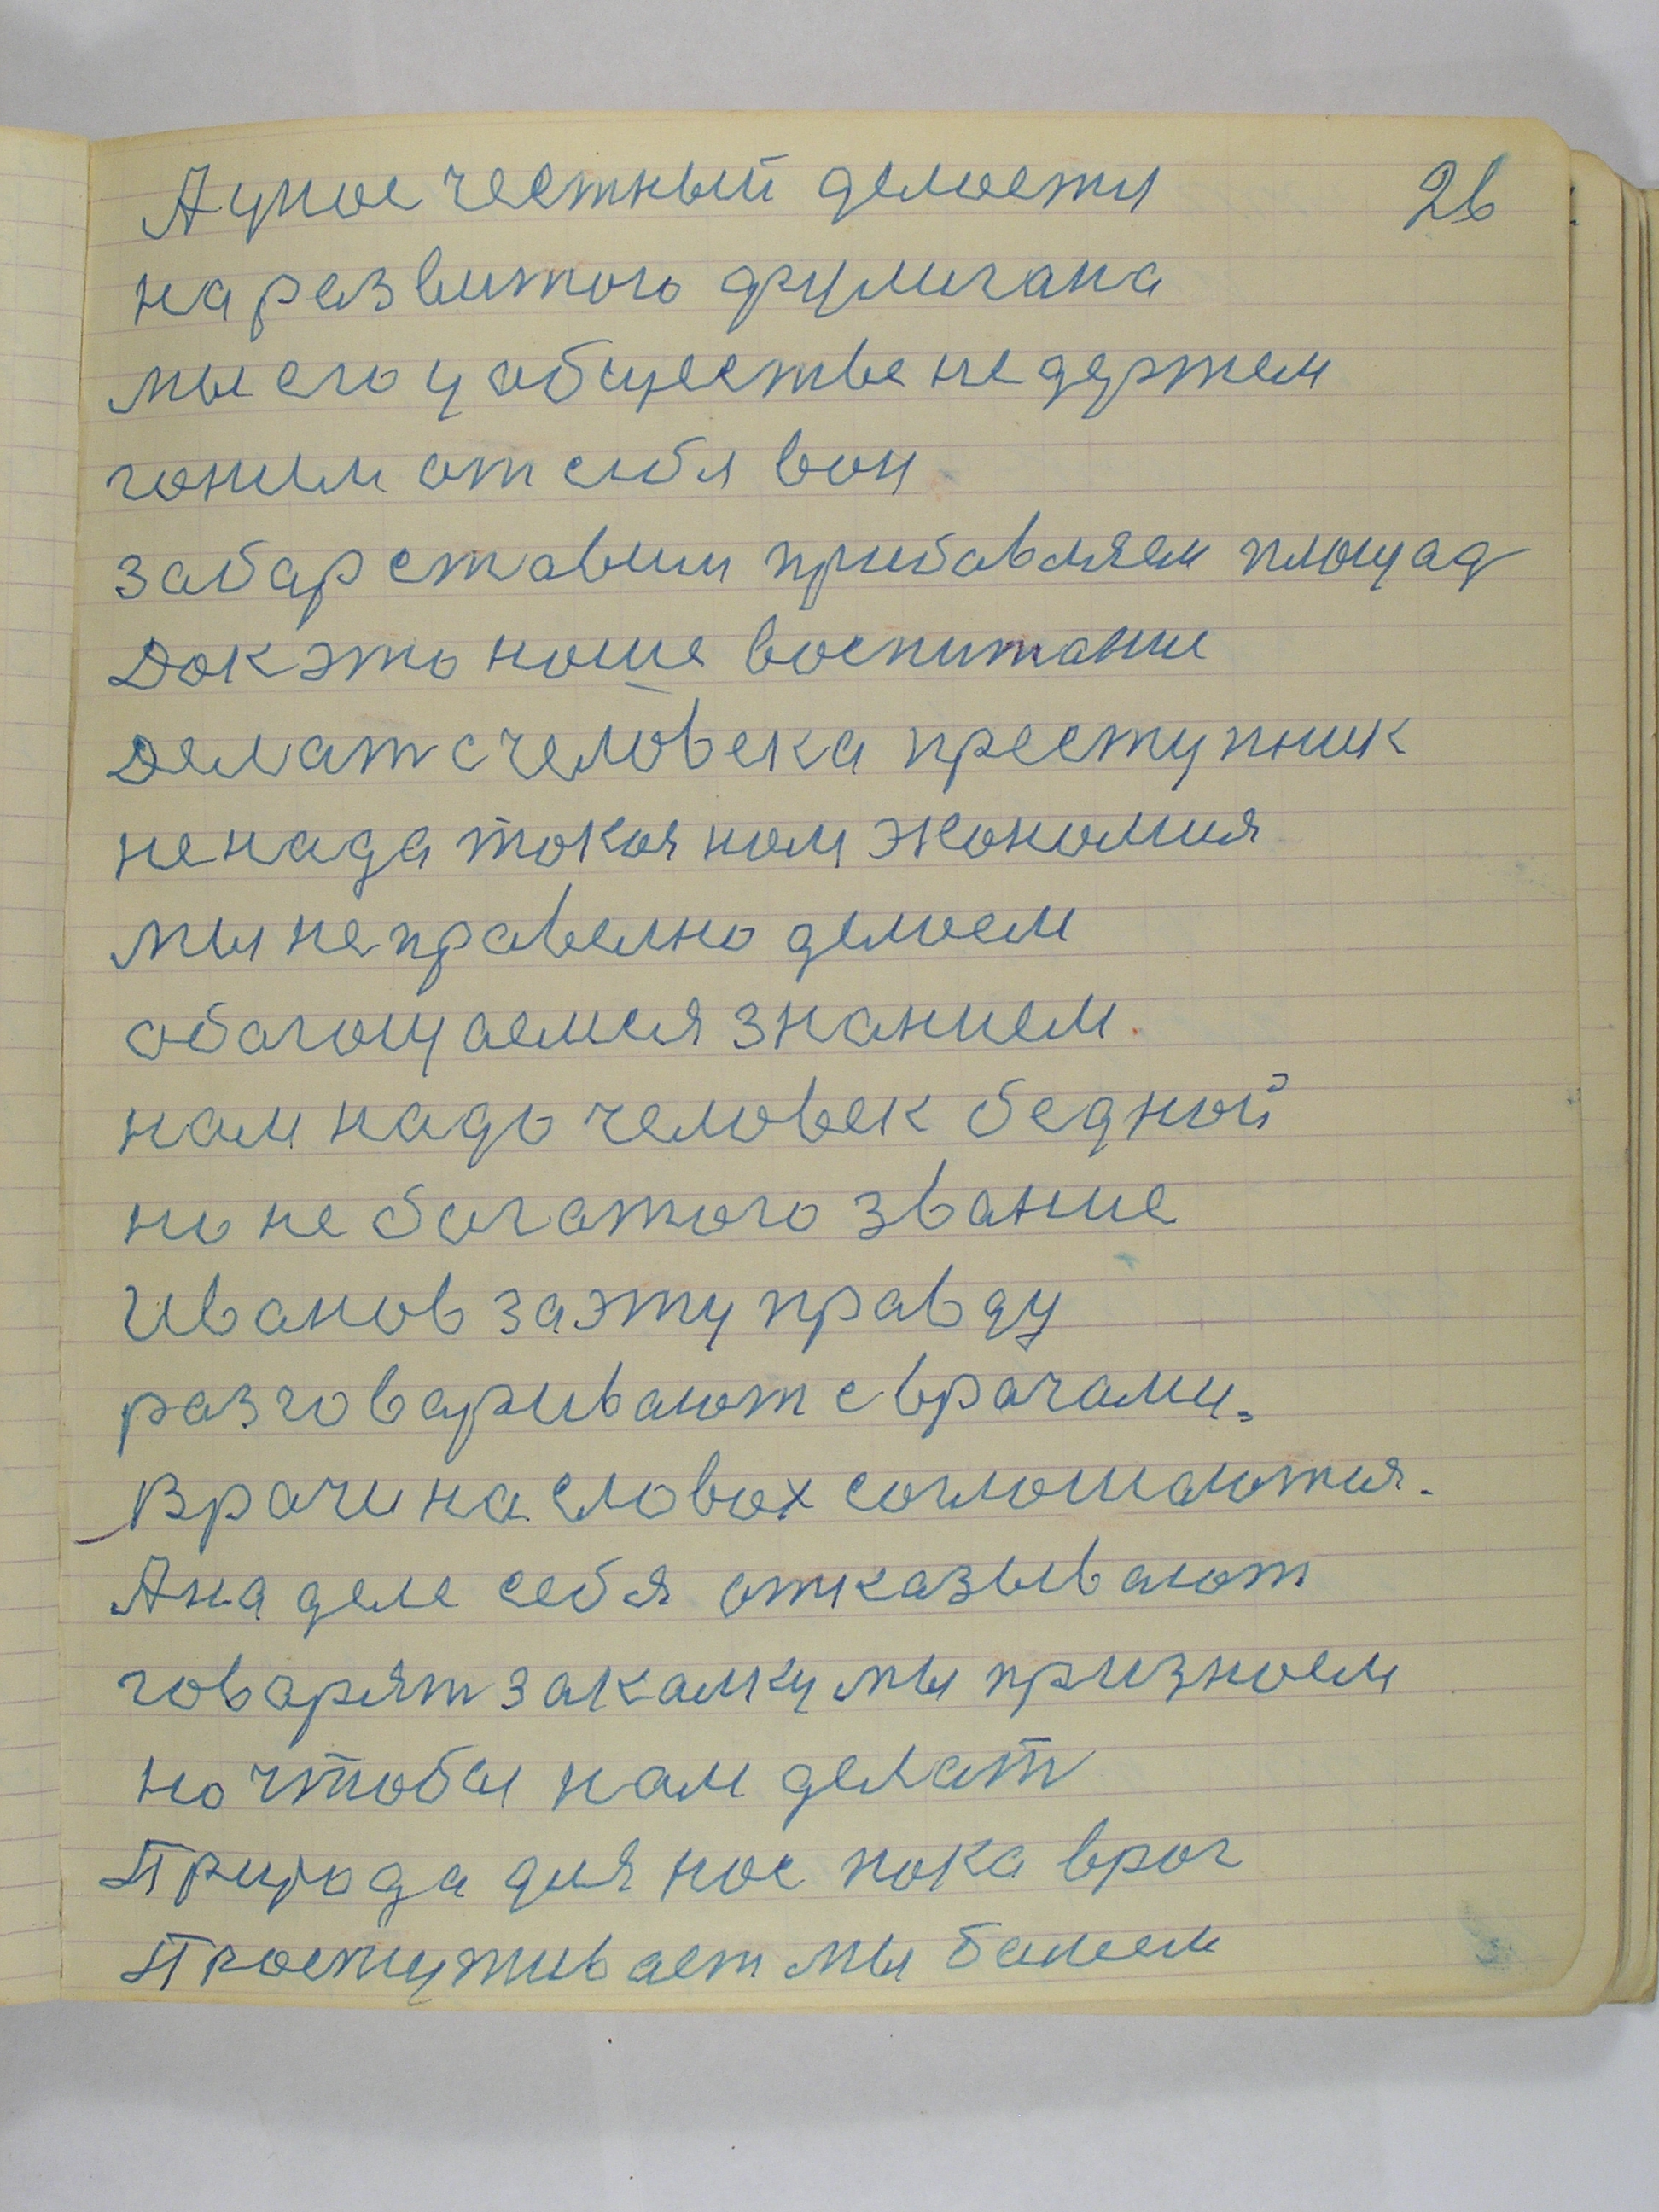 А у нас честный делается 26
на развитого фулигана
мы его у обществе не держем
гоним от себя вон
забар ставим прибавляем площад
Док это наше воспитание
Делат с человека преступник
не нада такая нам экономия
мы неправелно делаем
обагощаемся знанием.
нам надо человек бедной
но не богатого звание
Иванов за эту правду
разговаривают с врачами.
Врачи на словах соглошаются.
А на деле себя отказывают
говарят закалку мы признаем
но чтобы нам делат
Природа для нас пока враг
Простуживает мы балеем